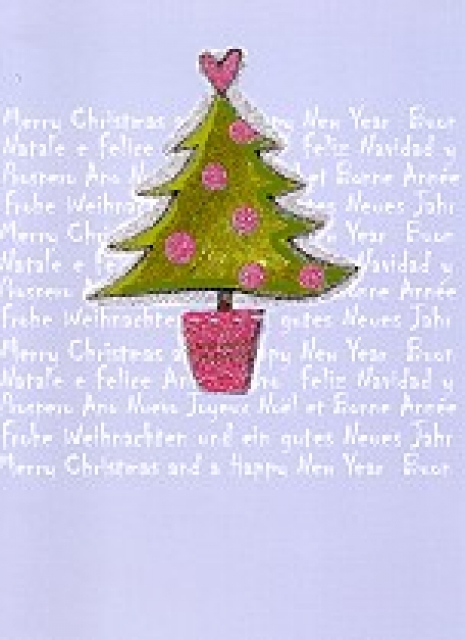 Merry Christmas a ppy New Year Buon
Natale e felice feliz Navidad y
Prospero Ano N et Bonne Année
Frohe Weihnac tes Neues Jahr
Merry Chri Year Buon
Natale e fe Navidad y
Prospero onne Année
Frohe Weihnachte gutes Neues Jahr
Merry Christmas a ppy New Year Buon
Natale e felice An no feliz Navidad y
Prospero Ano Nuevo Joyeux Noël et Bonne Année
Frohe Weihnachten und ein gutes Neues Jahr
Merry Christmas and a Happy New Year Buon